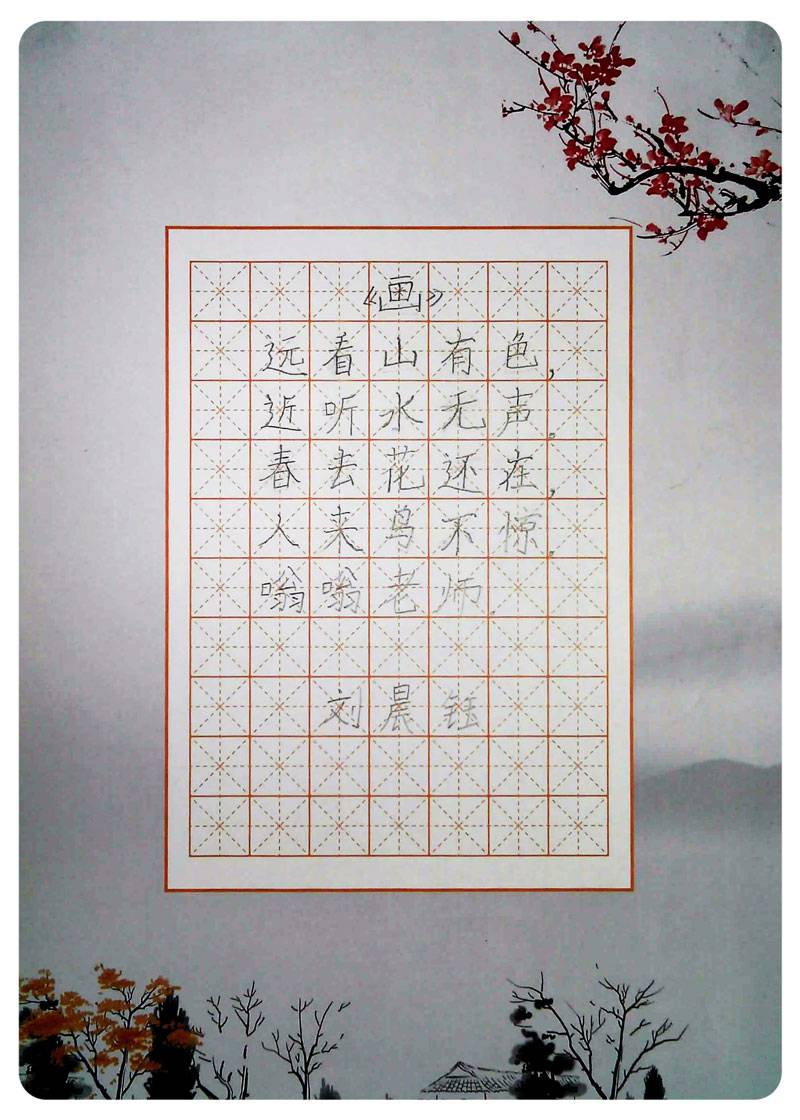 《画》
远看山有色，
近听水无声。
春去花还在，
人来鸟不惊。
嗡嗡老师
刘晨钰